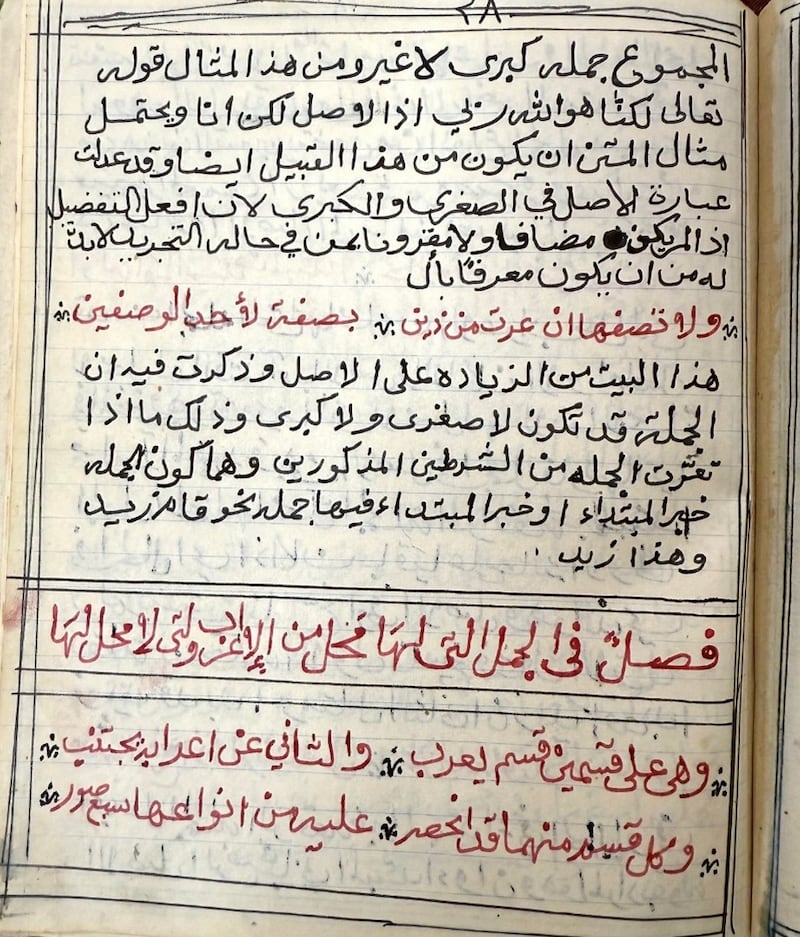 ٢٨
المجموع جمله كبرى لا غير ومن هذ المثال قوله
تعالى لكنّا هو الله ربي اذ الاصل لكن انا ويحتمل
مثال المتن ان يكون من هذا القبيل ايضا وقد عدلت
عبارة الاصل في الصغرى والكبرى لأن افعل التفضيل
اذ المريكن مضافا ولا مقرونا بمن في حاله التجريد لابدّ
له من ان يكون معرفًا بأل
ولا تصفها ان عرت من ذين ∴ بصفة لأحد الوصفين ∴
هذا البيت من الزياده على الاصل وذكرت فيه ان
الجملة قد تكون لا صغرى ولا كبرى وذلك ما اذا
تعرّت الجمله من الشرطين المذكورين وهما كون الجمله
خبر المبتداء او خبر المبتداء فيها جمله نحو قام زيد
وهذا زيد .
فصلٌ في الجمل التى لها محل من الإعراب ولتى لا محل لها
وهى على قسمين قسم يعرب ∴ والثاني عن اعرابه يجتنب ∴
وكل قسم منهما قد انحصر ∴ عليه من انواعها سبع صور ∴